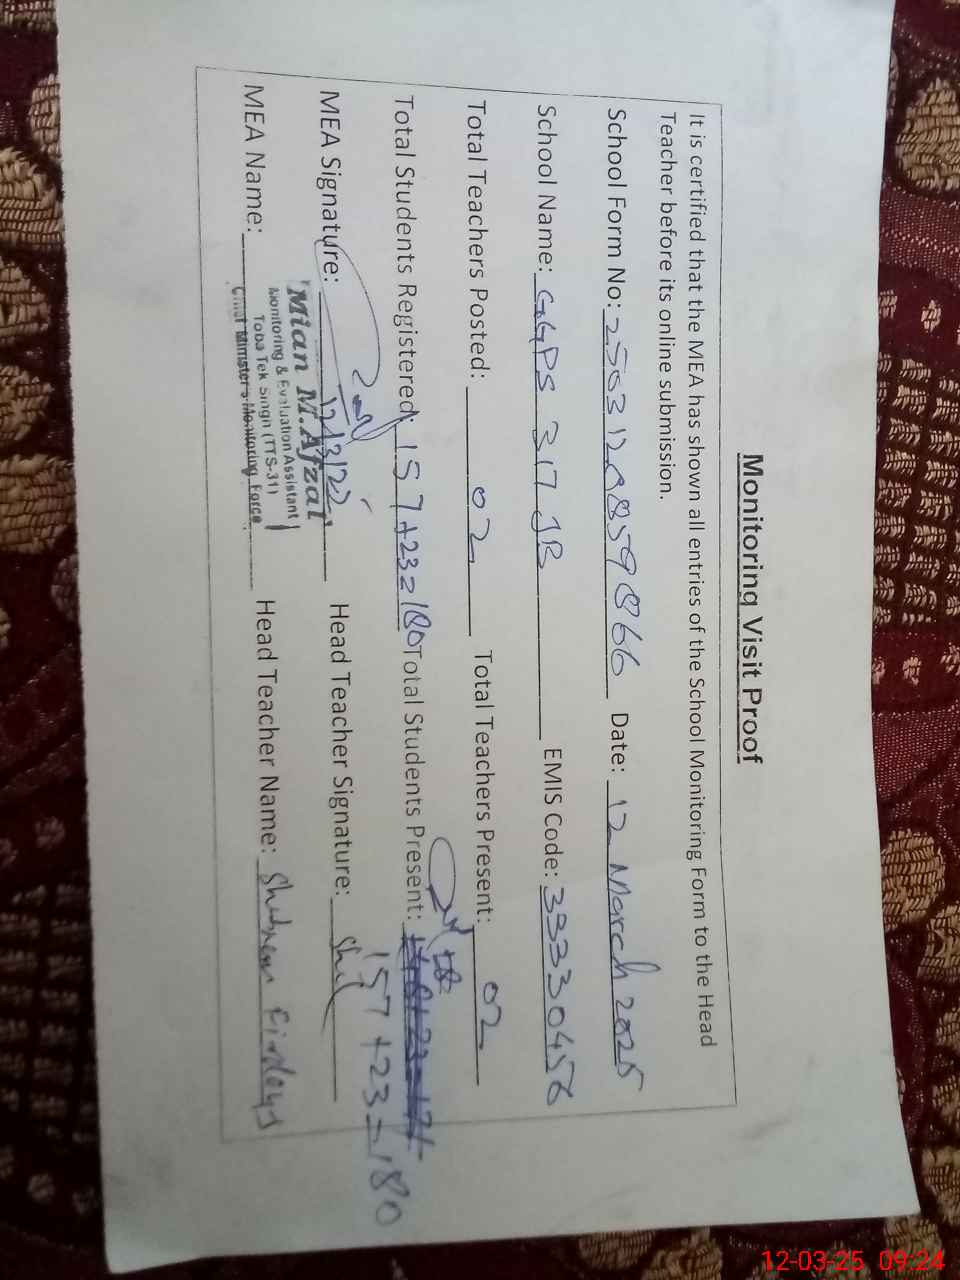 Monitoring Visit Proof
It is certified that the MEA has shown all entries of the School Monitoring Form to the Head
Teacher before its online submission.
School Form No: 2503120859866 Date: 12 March 2025
School Name: GGPS 317 JB EMIS Code: 33330456
Total Teachers Posted: 02 Total Teachers Present: 02
Total Students Registered: 157+23=180 Total Students Present:
157+23=180
MEA Signature: 12/3/25 Head Teacher Signature:
Mian M.Afzal
Monitoring & Evaluation Assistant
Toba Tek Singh (TTS-31)
Chief Minister's Monitoring Force
MEA Name: Head Teacher Name:
12-03-25 09:24